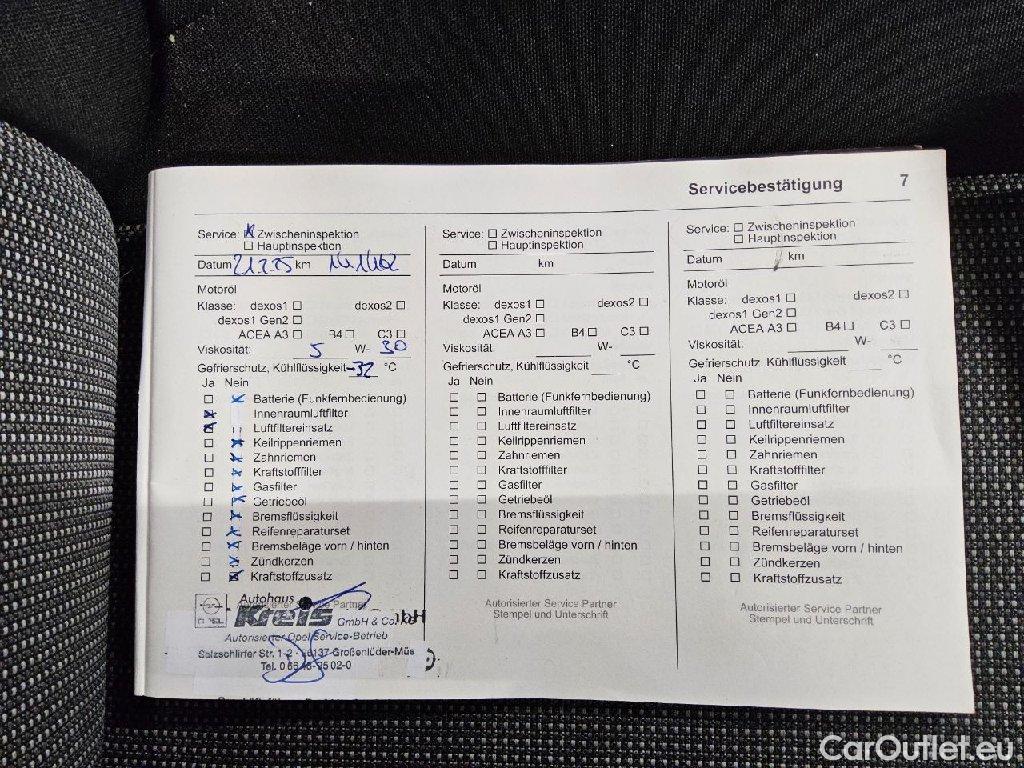 Servicebestätigung 7
Service: Zwischeninspektion
Hauptinspektion
Datum 21.7.25 km
Motoröl
Klasse: dexos1 dexos2
dexos1 Gen2
ACEA A3 B4 C3
Viskosität: 5 W- 30
Gefrierschutz, Kühlflüssigkeit -32 °C
Ja Nein
Batterie (Funkfernbedienung)
Innenraumluftfilter
Luftfiltereinsatz
Keilrippenriemen
Zahnriemen
Kraftstofffilter
Gasfilter
Getriebeöl
Bremsflüssigkeit
Reifenreparaturset
Bremsbeläge vorn / hinten
Zündkerzen
Kraftstoffzusatz
Autohaus
Kreis GmbH & Co.
Autorisierter Opel Service-Betrieb
Salzschlirfer Str. 1-2 - 36137 Großenlüder-Müs
Service: Zwischeninspektion
Hauptinspektion
Datum km
Motoröl
Klasse: dexos1 dexos2
dexos1 Gen2
ACEA A3 B4 C3
Viskosität: W-
Gefrierschutz, Kühlflüssigkeit °C
Ja Nein
Batterie (Funkfernbedienung)
Innenraumluftfilter
Luftfiltereinsatz
Keilrippenriemen
Zahnriemen
Kraftstofffilter
Gasfilter
Getriebeöl
Bremsflüssigkeit
Reifenreparaturset
Bremsbeläge vorn / hinten
Zündkerzen
Kraftstoffzusatz
Autorisierter Service Partner
Stempel und Unterschrift
Service: Zwischeninspektion
Hauptinspektion
Datum km
Motoröl
Klasse: dexos1 dexos2
dexos1 Gen2
ACEA A3 B4 C3
Viskosität: W-
Gefrierschutz, Kühlflüssigkeit °C
Ja Nein
Batterie (Funkfernbedienung)
Innenraumluftfilter
Luftfiltereinsatz
Keilrippenriemen
Zahnriemen
Kraftstofffilter
Gasfilter
Getriebeöl
Bremsflüssigkeit
Reifenreparaturset
Bremsbeläge vorn / hinten
Zündkerzen
Kraftstoffzusatz
Autorisierter Service Partner
Stempel und Unterschrift
CarOutlet.eu